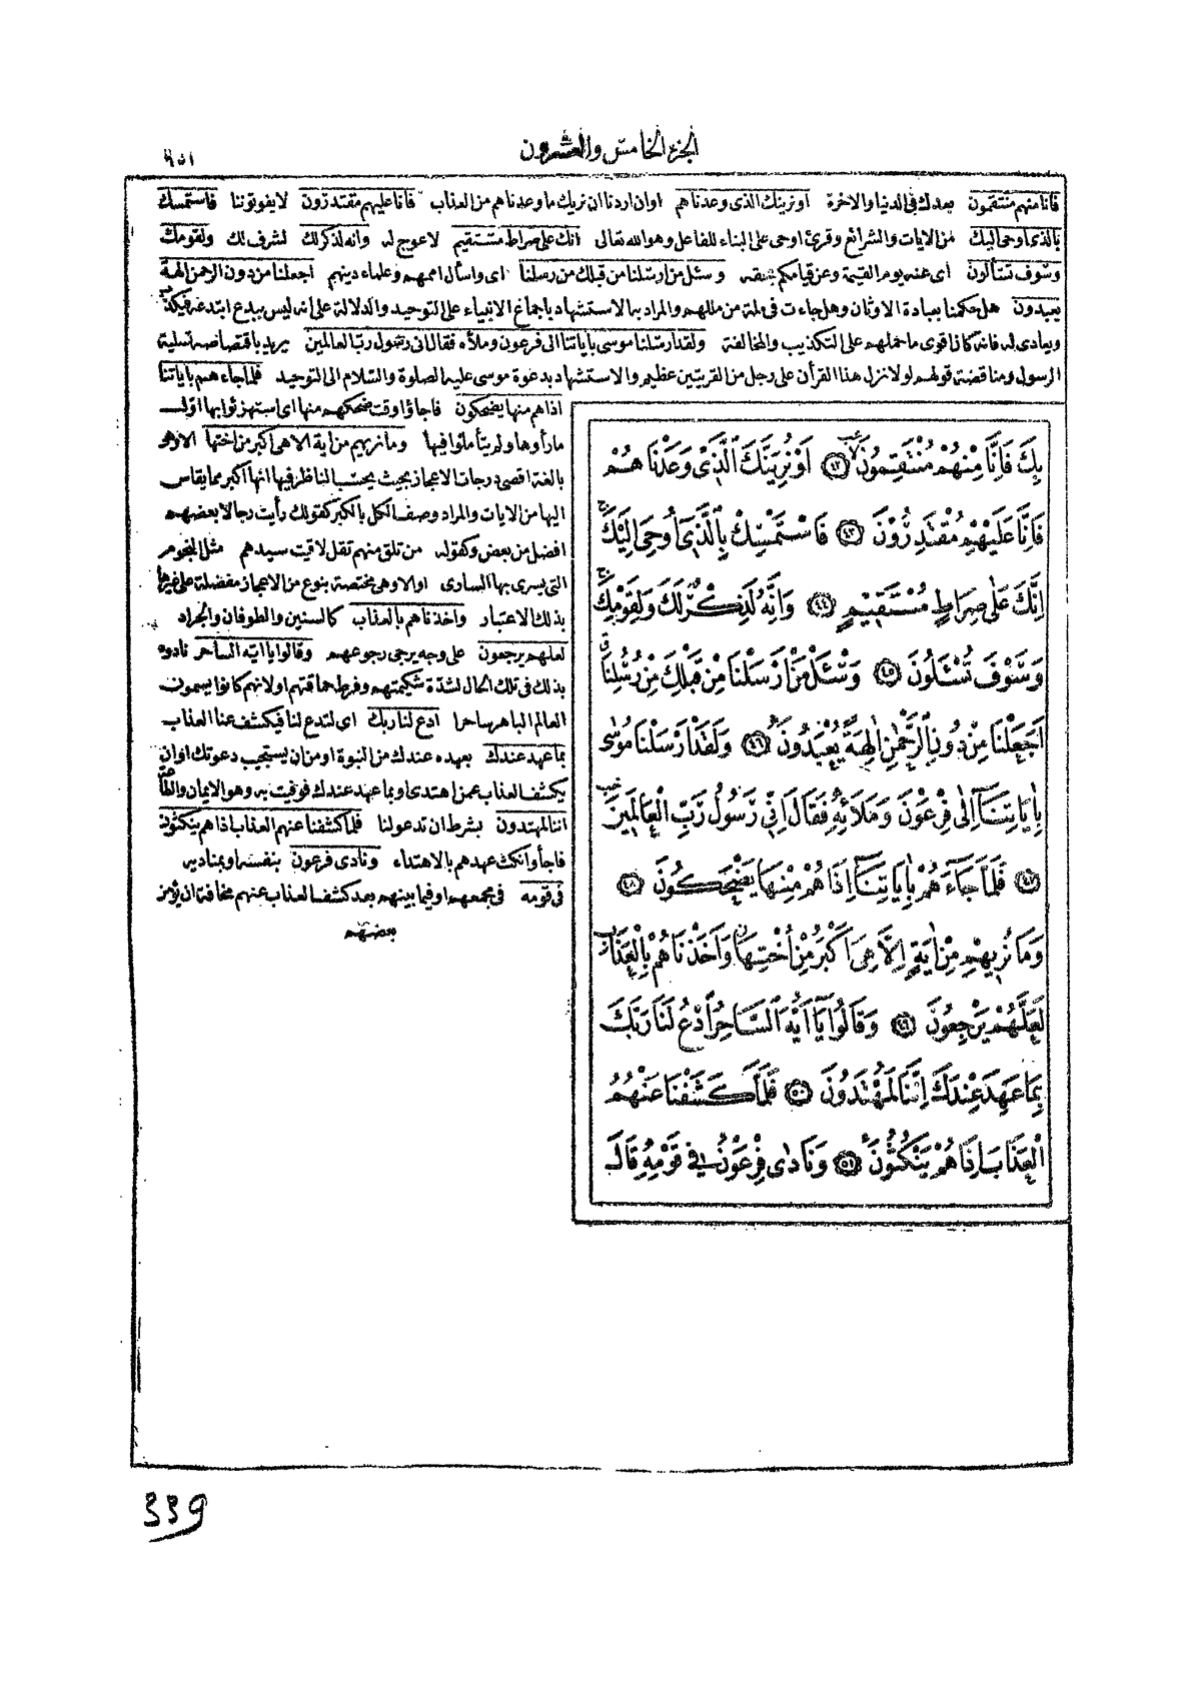 الجزء الخامس والعشرون
٦٥١
فانا منهم منتقمون بعدك فى الدنيا والاخرة او نرينك الذى وعدناهم او ان اردنا ان نريك ما وعدناهم من العذاب فانا عليهم مقتدرون لا يفوتوننا فاستمسك
بالذى اوحى اليك من الايات والشرائع وقرئ اوحى على البناء للفاعل وهو الله تعالى انك على صراط مستقيم لا عوج له وانه لذكر لك لشرف لك ولقومك
وسوف تسألون اى عنه يوم القيمة وعن قيامكم بحقه وسئل من ارسلنا من قبلك من رسلنا اى واسأل اممهم وعلماء دينهم اجعلنا من دون الرحمن الهة
يعبدون هل حكمنا بعبادة الاوثان وهل جاءت فى ملة من مللهم والمراد به الاستشهاد باجماع الانبياء على التوحيد والدلالة على انه ليس ببدع ابتدعه فيكذب
ويعادى له فانه كان اقوى ما حملهم على التكذيب والمخالفة ولقد ارسلنا موسى باياتنا الى فرعون وملأه فقال انى رسول رب العالمين يريد باقتصاصه تسلية
الرسول ومناقضة قولهم لولا نزل هذا القرأن على رجل من القريتين عظيم والاستشهاد بدعوة موسى عليه الصلوة والسلام الى التوحيد فلما جاءهم باياتنا
اذا هم منها يضحكون فاجاؤا وقت ضحكهم منها اى استهزئوا بها اول
ما رأوها ولم يتأملوا فيها وما نريهم من اية الا هى اكبر من اختها الا وهى
بالغة اقصى درجات الاعجاز بحيث يحسب الناظر فيها انها اكبر مما يقاس
اليها من الايات والمراد وصف الكل بالكبر كقولك رأيت رجالا بعضهم
افضل من بعض وكقوله من تلق منهم تقل لاقيت سيدهم مثل النجوم
التى يسرى بها السارى او الا وهى مختصة بنوع من الاعجاز مفضلة على غيرها
بذلك الاعتبار واخذناهم بالعذاب كالسنين والطوفان والجراد
لعلهم يرجعون على وجه يرجى رجوعهم وقالوا يا ايه الساحر نادوه
بذلك فى تلك الحال لشدة شكيمتهم وفرط حماقتهم او لانهم كانوا يسمون
العالم الباهر ساحرا ادع لنا ربك اى لتدع لنا فيكشف عنا العذاب
بما عهد عندك بعهده عندك من النبوة او من ان يستجيب دعوتك او ان
يكشف العذاب عمن اهتدى او بما عهد عندك فوفيت به وهو الايمان والطاعة
اننا لمهتدون بشرط ان تدعو لنا فلما كشفنا عنهم العذاب اذا هم ينكثون
فاجأوا نكث عهدهم بالاهتداء ونادى فرعون بنفسه او بمناديه
فى قومه فى مجمعهم او فيما بينهم بعد كشف العذاب عنهم مخافة ان يؤمن
بعضهم
بِكَ فَاِنَّا مِنْهُمْ مُنْتَقِمُونَ ﴿٤٢﴾ اَوْ نُرِيَنَّكَ الَّذِى وَعَدْنَاهُمْ
فَاِنَّا عَلَيْهِمْ مُقْتَدِرُونَ ﴿٤٣﴾ فَاسْتَمْسِكْ بِالَّذِى اُوحِىَ اِلَيْكَ
اِنَّكَ عَلٰى صِرَاطٍ مُسْتَقِيمٍ ﴿٤٤﴾ وَاِنَّهُ لَذِكْرٌ لَكَ وَلِقَوْمِكَ
وَسَوْفَ تُسْـَٔلُونَ ﴿٤٥﴾ وَسْـَٔلْ مَنْ اَرْسَلْنَا مِنْ قَبْلِكَ مِنْ رُسُلِنَا
اَجَعَلْنَا مِنْ دُونِ الرَّحْمٰنِ اٰلِهَةً يُعْبَدُونَ ﴿٤٦﴾ وَلَقَدْ اَرْسَلْنَا مُوسٰى
بِاٰيَاتِنَا اِلٰى فِرْعَوْنَ وَمَلَا۬ئِهِ فَقَالَ اِنِّى رَسُولُ رَبِّ الْعَالَمِينَ
﴿٤٧﴾ فَلَمَّا جَاءَهُمْ بِاٰيَاتِنَا اِذَا هُمْ مِنْهَا يَضْحَكُونَ ﴿٤٨﴾
وَمَا نُرِيهِمْ مِنْ اٰيَةٍ اِلَّا هِىَ اَكْبَرُ مِنْ اُخْتِهَا وَاَخَذْنَاهُمْ بِالْعَذَابِ
لَعَلَّهُمْ يَرْجِعُونَ ﴿٤٩﴾ وَقَالُوا يَا اَيُّهَ السَّاحِرُ ادْعُ لَنَا رَبَّكَ
بِمَا عَهِدَ عِنْدَكَ اِنَّنَا لَمُهْتَدُونَ ﴿٥٠﴾ فَلَمَّا كَشَفْنَا عَنْهُمُ
الْعَذَابَ اِذَا هُمْ يَنْكُثُونَ ﴿٥١﴾ وَنَادٰى فِرْعَوْنُ فِى قَوْمِهِ قَالَ
339